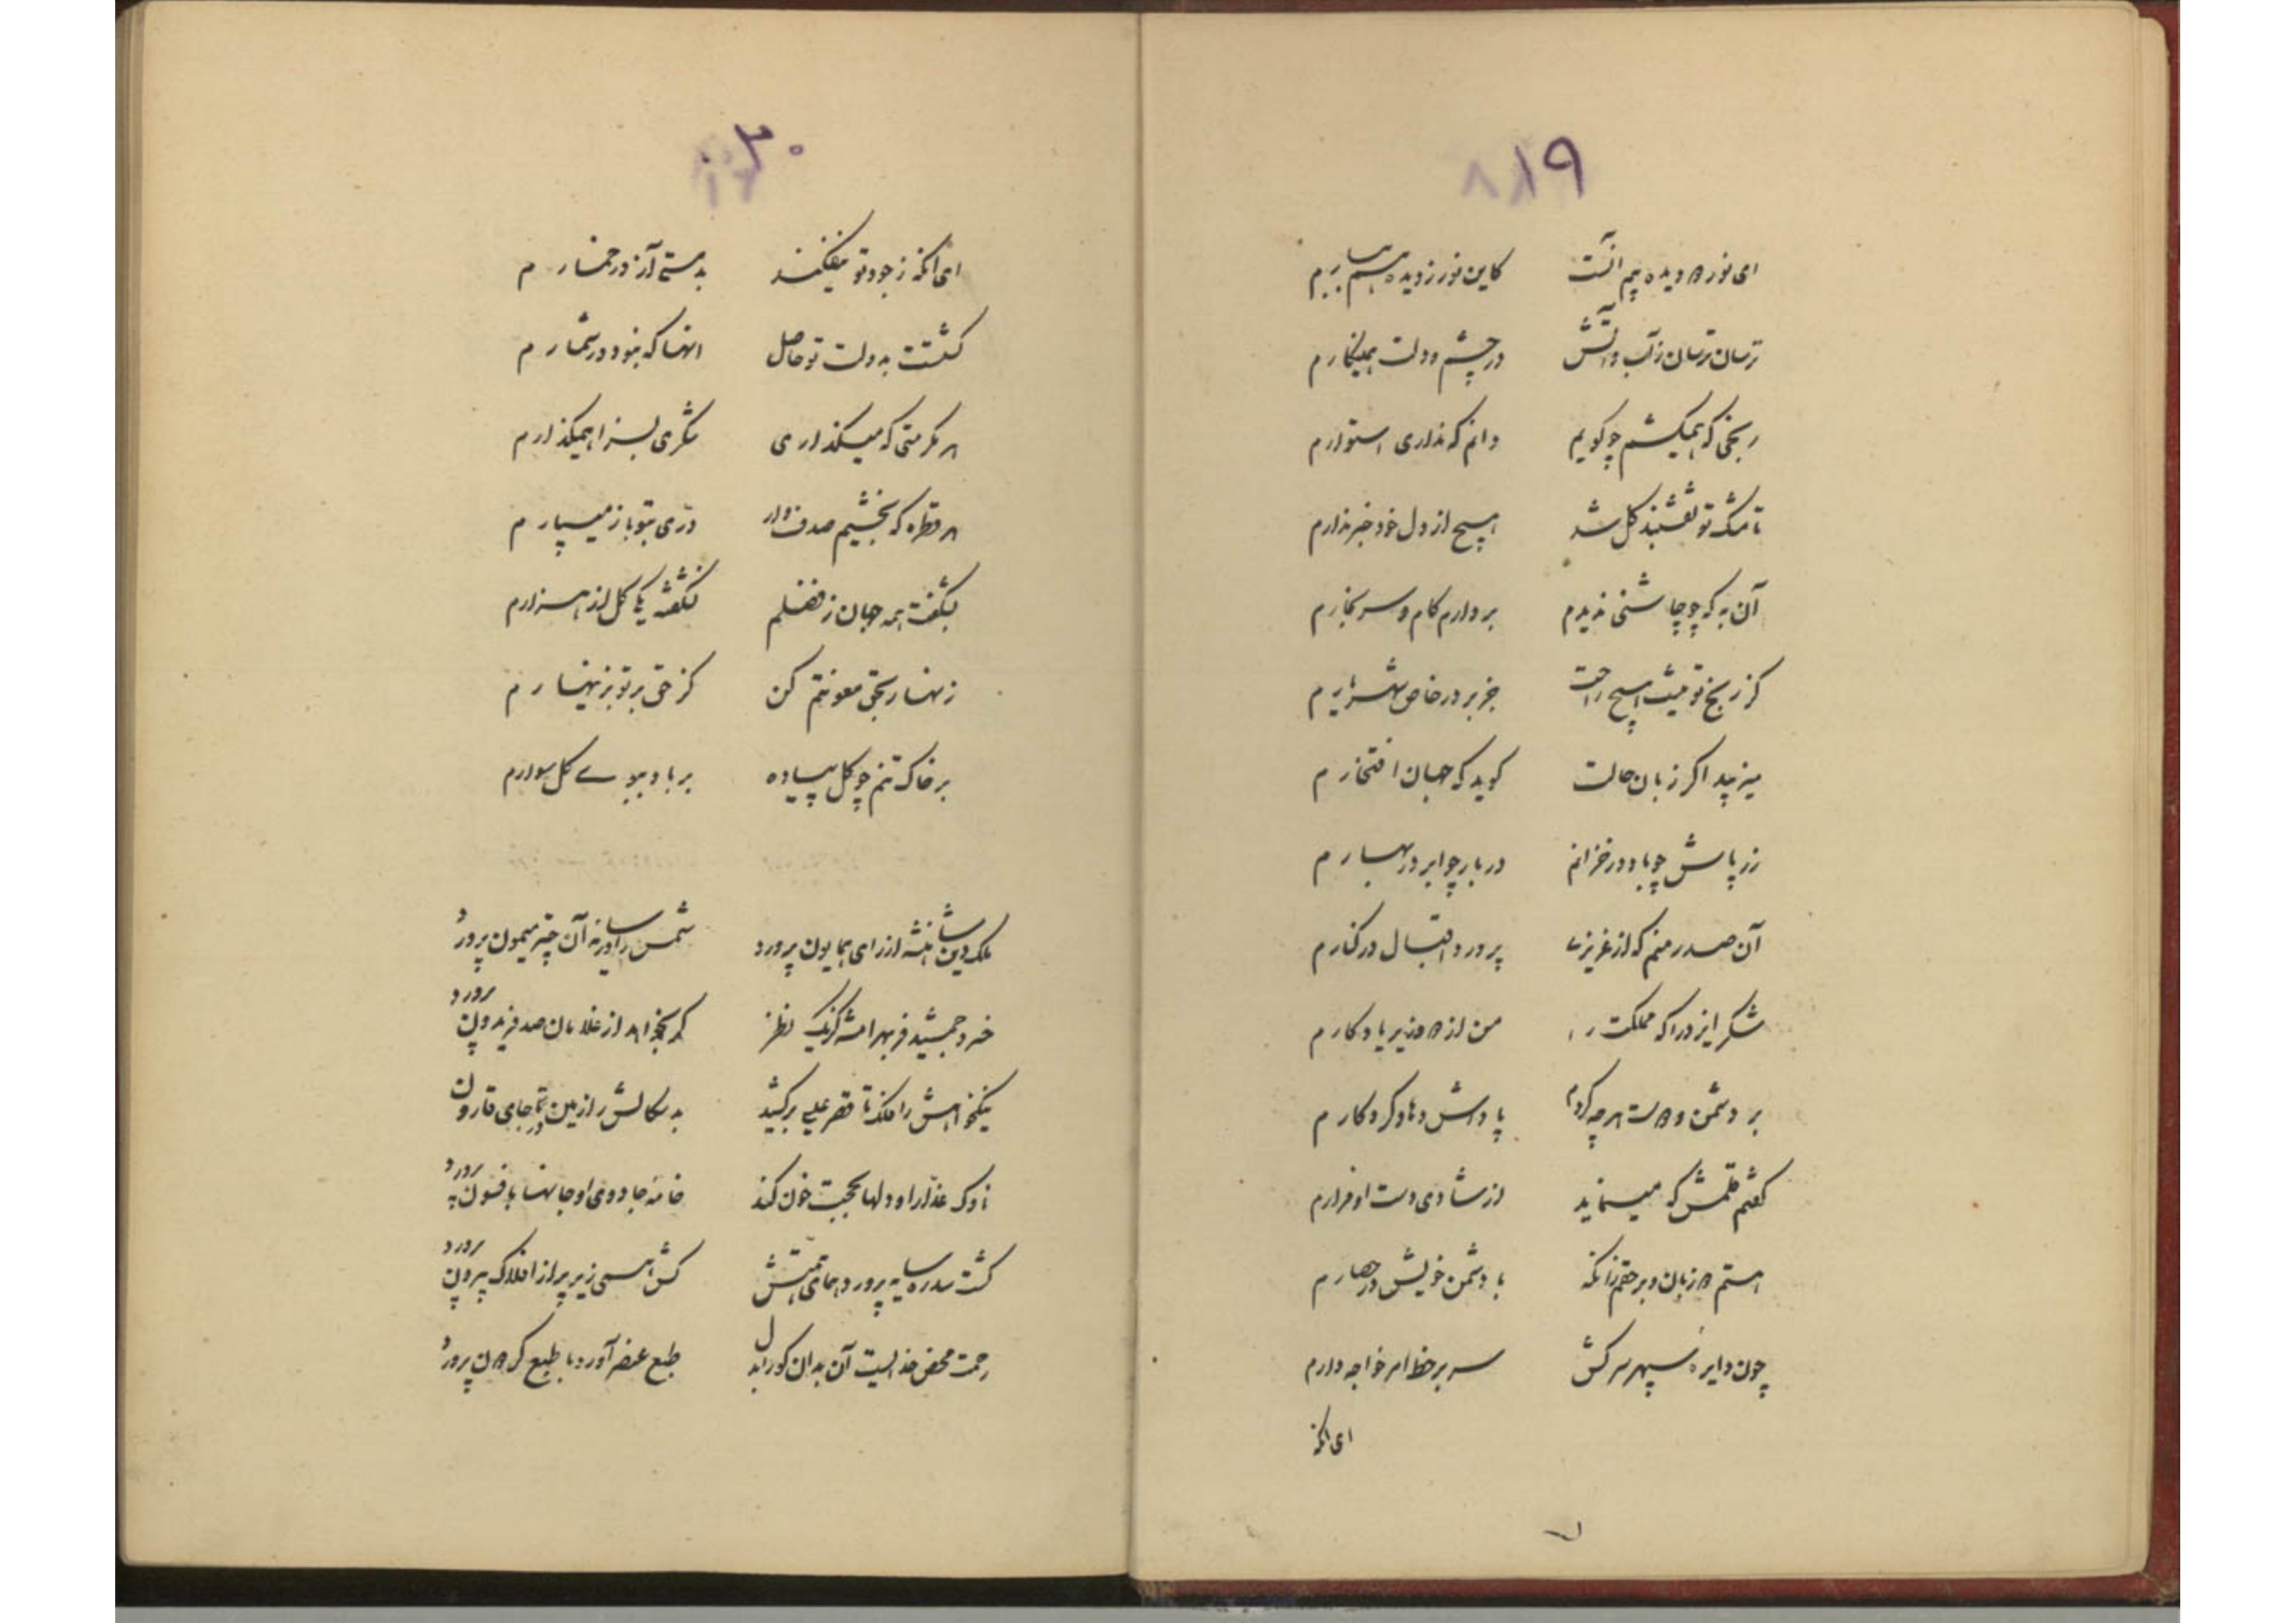 ۱۹
ای نور دو دیده بیم آنست کاین نور ز دیده هم ببارم
ترسان ترسان ز آب و آتش در چشم و دلت همی نگارم
رنجی که همیکشم چو گویم دانم که نداری استوارم
تا مشک تو نقشبند گل شد هیچ از دل خود خبر ندارم
آن به که چو چاشنی ندیدم بردارم کام و سر بخارم
کز رنج تو نیست هیچ راحت جز بر در خاص شهریارم
میزیبد اگر زبان حالت گوید که جهان افتخارم
زر پاش چو باد در خزانم دربار چو ابر در بهارم
آن صدر منم که از عزیزی پرورد اقبال در کنارم
شکر ایزد را که مملکت را من از دو وزیر یادگارم
بر دشمن و دوست هرچه کردم پاداش دهاد کردگارم
گفتم قلمش که مینماید از شادی دست او فرارم
هستم دو زبان و بر حقم زانکه با دشمن خویش در حصارم
چون دایره سپهر سرکش سر بر خط امر خواجه دارم
ای انکه
۲۰
ای انکه ز جود تو بیفکند بدمستی آز در خمارم
گشتت به دولت تو حاصل انها که نبود در شمارم
هر مکرمتی که میگذاری شکری بسزا همیگذارم
هر قطره که بخشیم صدف وار دری بتو باز میسپارم
بشکفت همه جهان ز فضلم نشکفته یکی گل از هزارم
زنهار بحق معونتم کن کز حق بر تو بزینهارم
بر خاک تنم چو گل پیاده بر باد ببوی گل سوارم
ملک دین شاهنشه از رای همایون پرورد شمس را در سایه آن چتر میمون پرورد
خسرو جمشید فر بهرامشه کز یک نظر گر بخواهد از غلامان صد فریدون پرورد
نیکخواهش را فلک تا قصر عیسی برکشید بدسگالش را زمین تا جای قارون
ناوک عذار او دلها بحجت خون کند خامه جادوی او جانها بافسون پرورد
گشت سدره سایه پرورد همای همتش کش همی زیر پر از افلاک بیرون پرورد
رحمت محض خدائیست آن بدان کو را بدل طبع عنصر آورد با طبع گردون پرورد